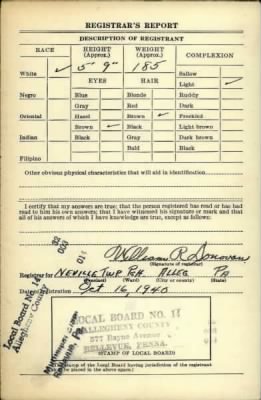 REGISTRAR'S REPORT
DESCRIPTION OF REGISTRANT
RACE HEIGHT (Approx.) WEIGHT (Approx.) COMPLEXION
White ✓ 5' 9" 185 Sallow
EYES HAIR Light ✓
Negro Blue Blonde Ruddy
Gray Red Dark
Oriental Hazel Brown ✓ Freckled
Brown ✓ Black Light brown
Indian Black Gray Dark brown
Bald Black
Filipino
Other obvious physical characteristics that will aid in identification
I certify that my answers are true; that the person registered has read or has had
read to him his own answers; that I have witnessed his signature or mark and that
all of his answers of which I have knowledge are true, except as follows:
William R Donovan
(Signature of registrar)
Registrar for NEVILLE TWP PGH. ALLEG PA
(Precinct) (Ward) (City or county) (State)
Date of registration Oct 16, 1940
Local Board No. 11
Allegheny County
LOCAL BOARD NO. 11
ALLEGHENY COUNTY
577 Bayne Avenue
BELLEVUE, PENNA.
(STAMP OF LOCAL BOARD)
(The stamp of the Local Board having jurisdiction of the registrant
shall be placed in the above space.)